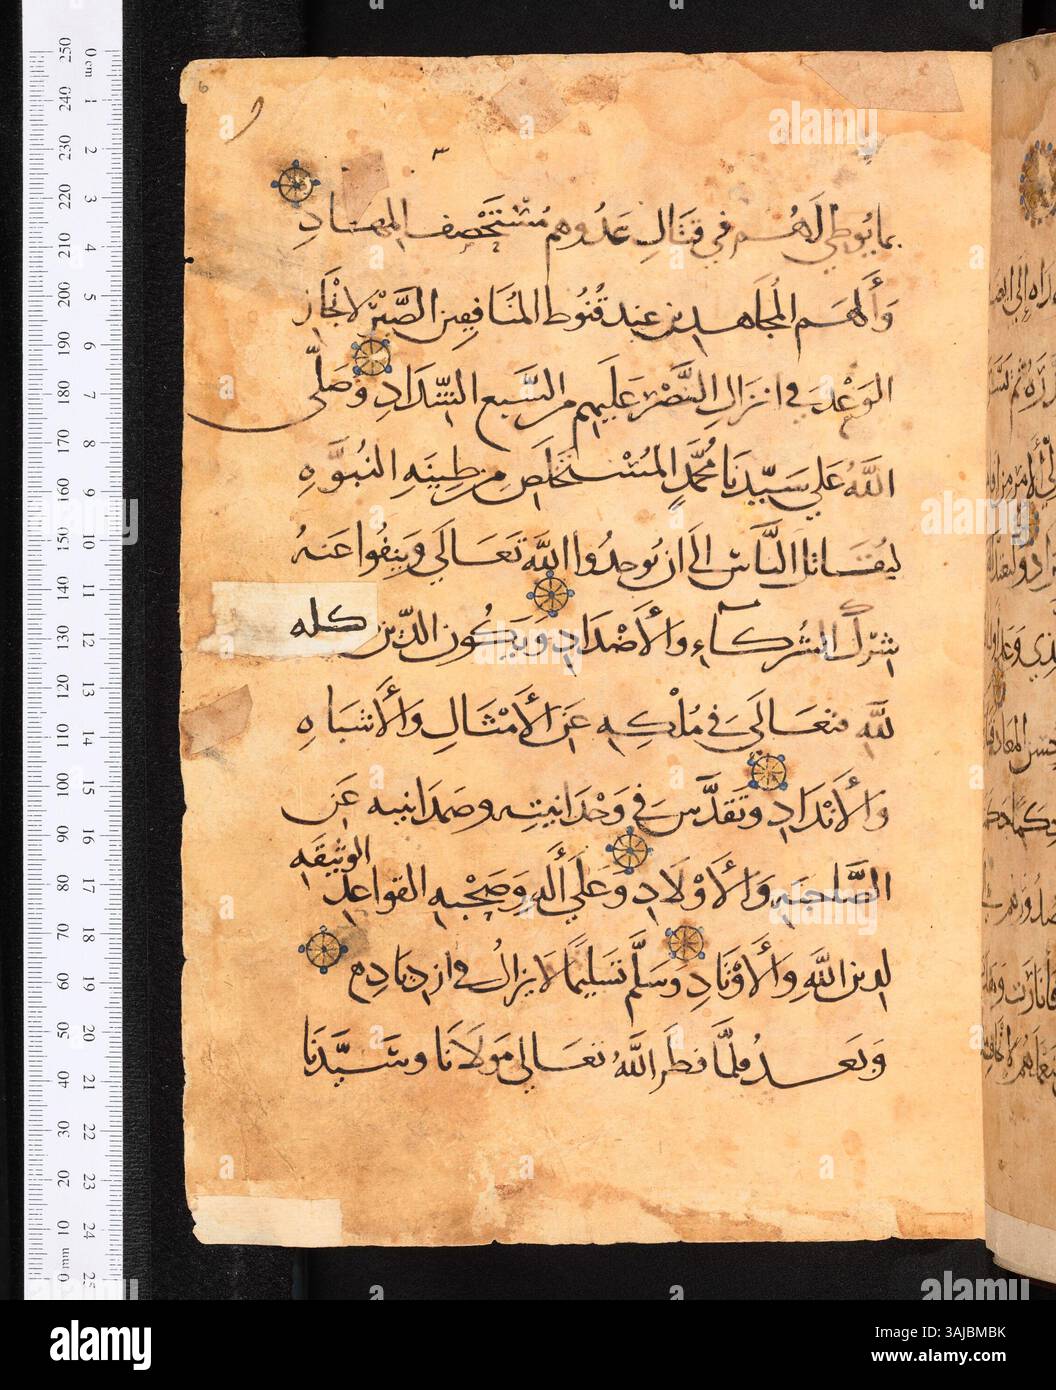 بما يوطي لهم في قتال عدوهم مستخصف المهاد
وألهم المجاهدين عند قنوط المنافقين الصبر لانجاز
الوعد في انزال النصر عليهم من السبع الشداد وصلى
الله على سيدنا محمد المستخلص من طينة النبوة
ليقاتل الناس الى ان يوحدوا الله تعالى وينفوا عنه
شرك الشركاء والأضداد ويكون الدين كله
لله فتعالى في ملكه عن الأمثال والأشباه
والأنداد وتقدس في وحدانيته وصمدانيته عن
الصاحبة والأولاد وعلى أله وصحبه القواعد الوثيقة
لدين الله والأوتاد وسلم تسليما لا يزال في ازدياد
وبعد فلما فطر الله تعالى مولانا وسيدنا
0 cm 1 2 3 4 5 6 7 8 9 10 11 12 13 14 15 16 17 18 19 20 21 22 23 24 25
250 240 230 220 210 200 190 180 170 160 150 140 130 120 110 100 90 80 70 60 50 40 30 20 10 0 mm
6
alamy
a alamy
3AJBMBK
www.alamy.com